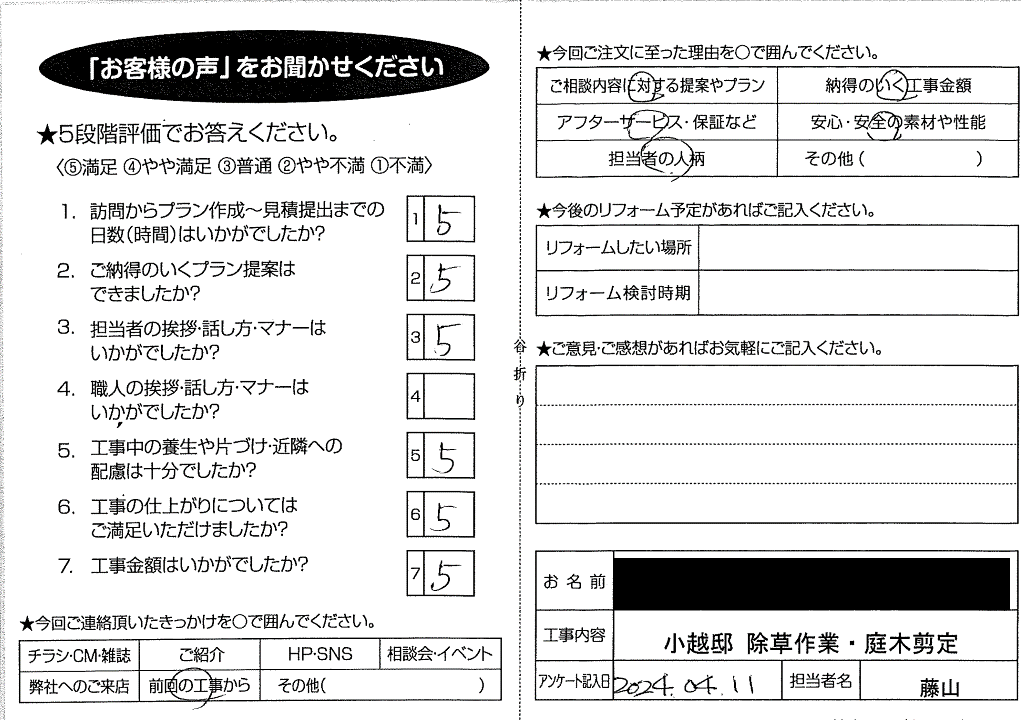 「お客様の声」をお聞かせください
★5段階評価でお答えください。
〈⑤満足 ④やや満足 ③普通 ②やや不満 ①不満〉
1. 訪問からプラン作成～見積提出までの
日数(時間)はいかがでしたか?
1 5
2. ご納得のいくプラン提案は
できましたか?
2 5
3. 担当者の挨拶・話し方・マナーは
いかがでしたか?
3 5
4. 職人の挨拶・話し方・マナーは
いかがでしたか?
4
5. 工事中の養生や片づけ・近隣への
配慮は十分でしたか?
5 5
6. 工事の仕上がりについては
ご満足いただけましたか?
6 5
7. 工事金額はいかがでしたか?
7 5
★今回ご連絡頂いたきっかけを○で囲んでください。
チラシ・CM・雑誌 ご紹介 HP・SNS 相談会・イベント
弊社へのご来店 前回の工事から その他( )
谷折り
★今回ご注文に至った理由を○で囲んでください。
ご相談内容に対する提案やプラン 納得のいく工事金額
アフターサービス・保証など 安心・安全の素材や性能
担当者の人柄 その他( )
★今後のリフォーム予定があればご記入ください。
リフォームしたい場所
リフォーム検討時期
★ご意見・ご感想があればお気軽にご記入ください。
お名前
工事内容 小越邸 除草作業・庭木剪定
アンケート記入日 2024.04.11 担当者名 藤山